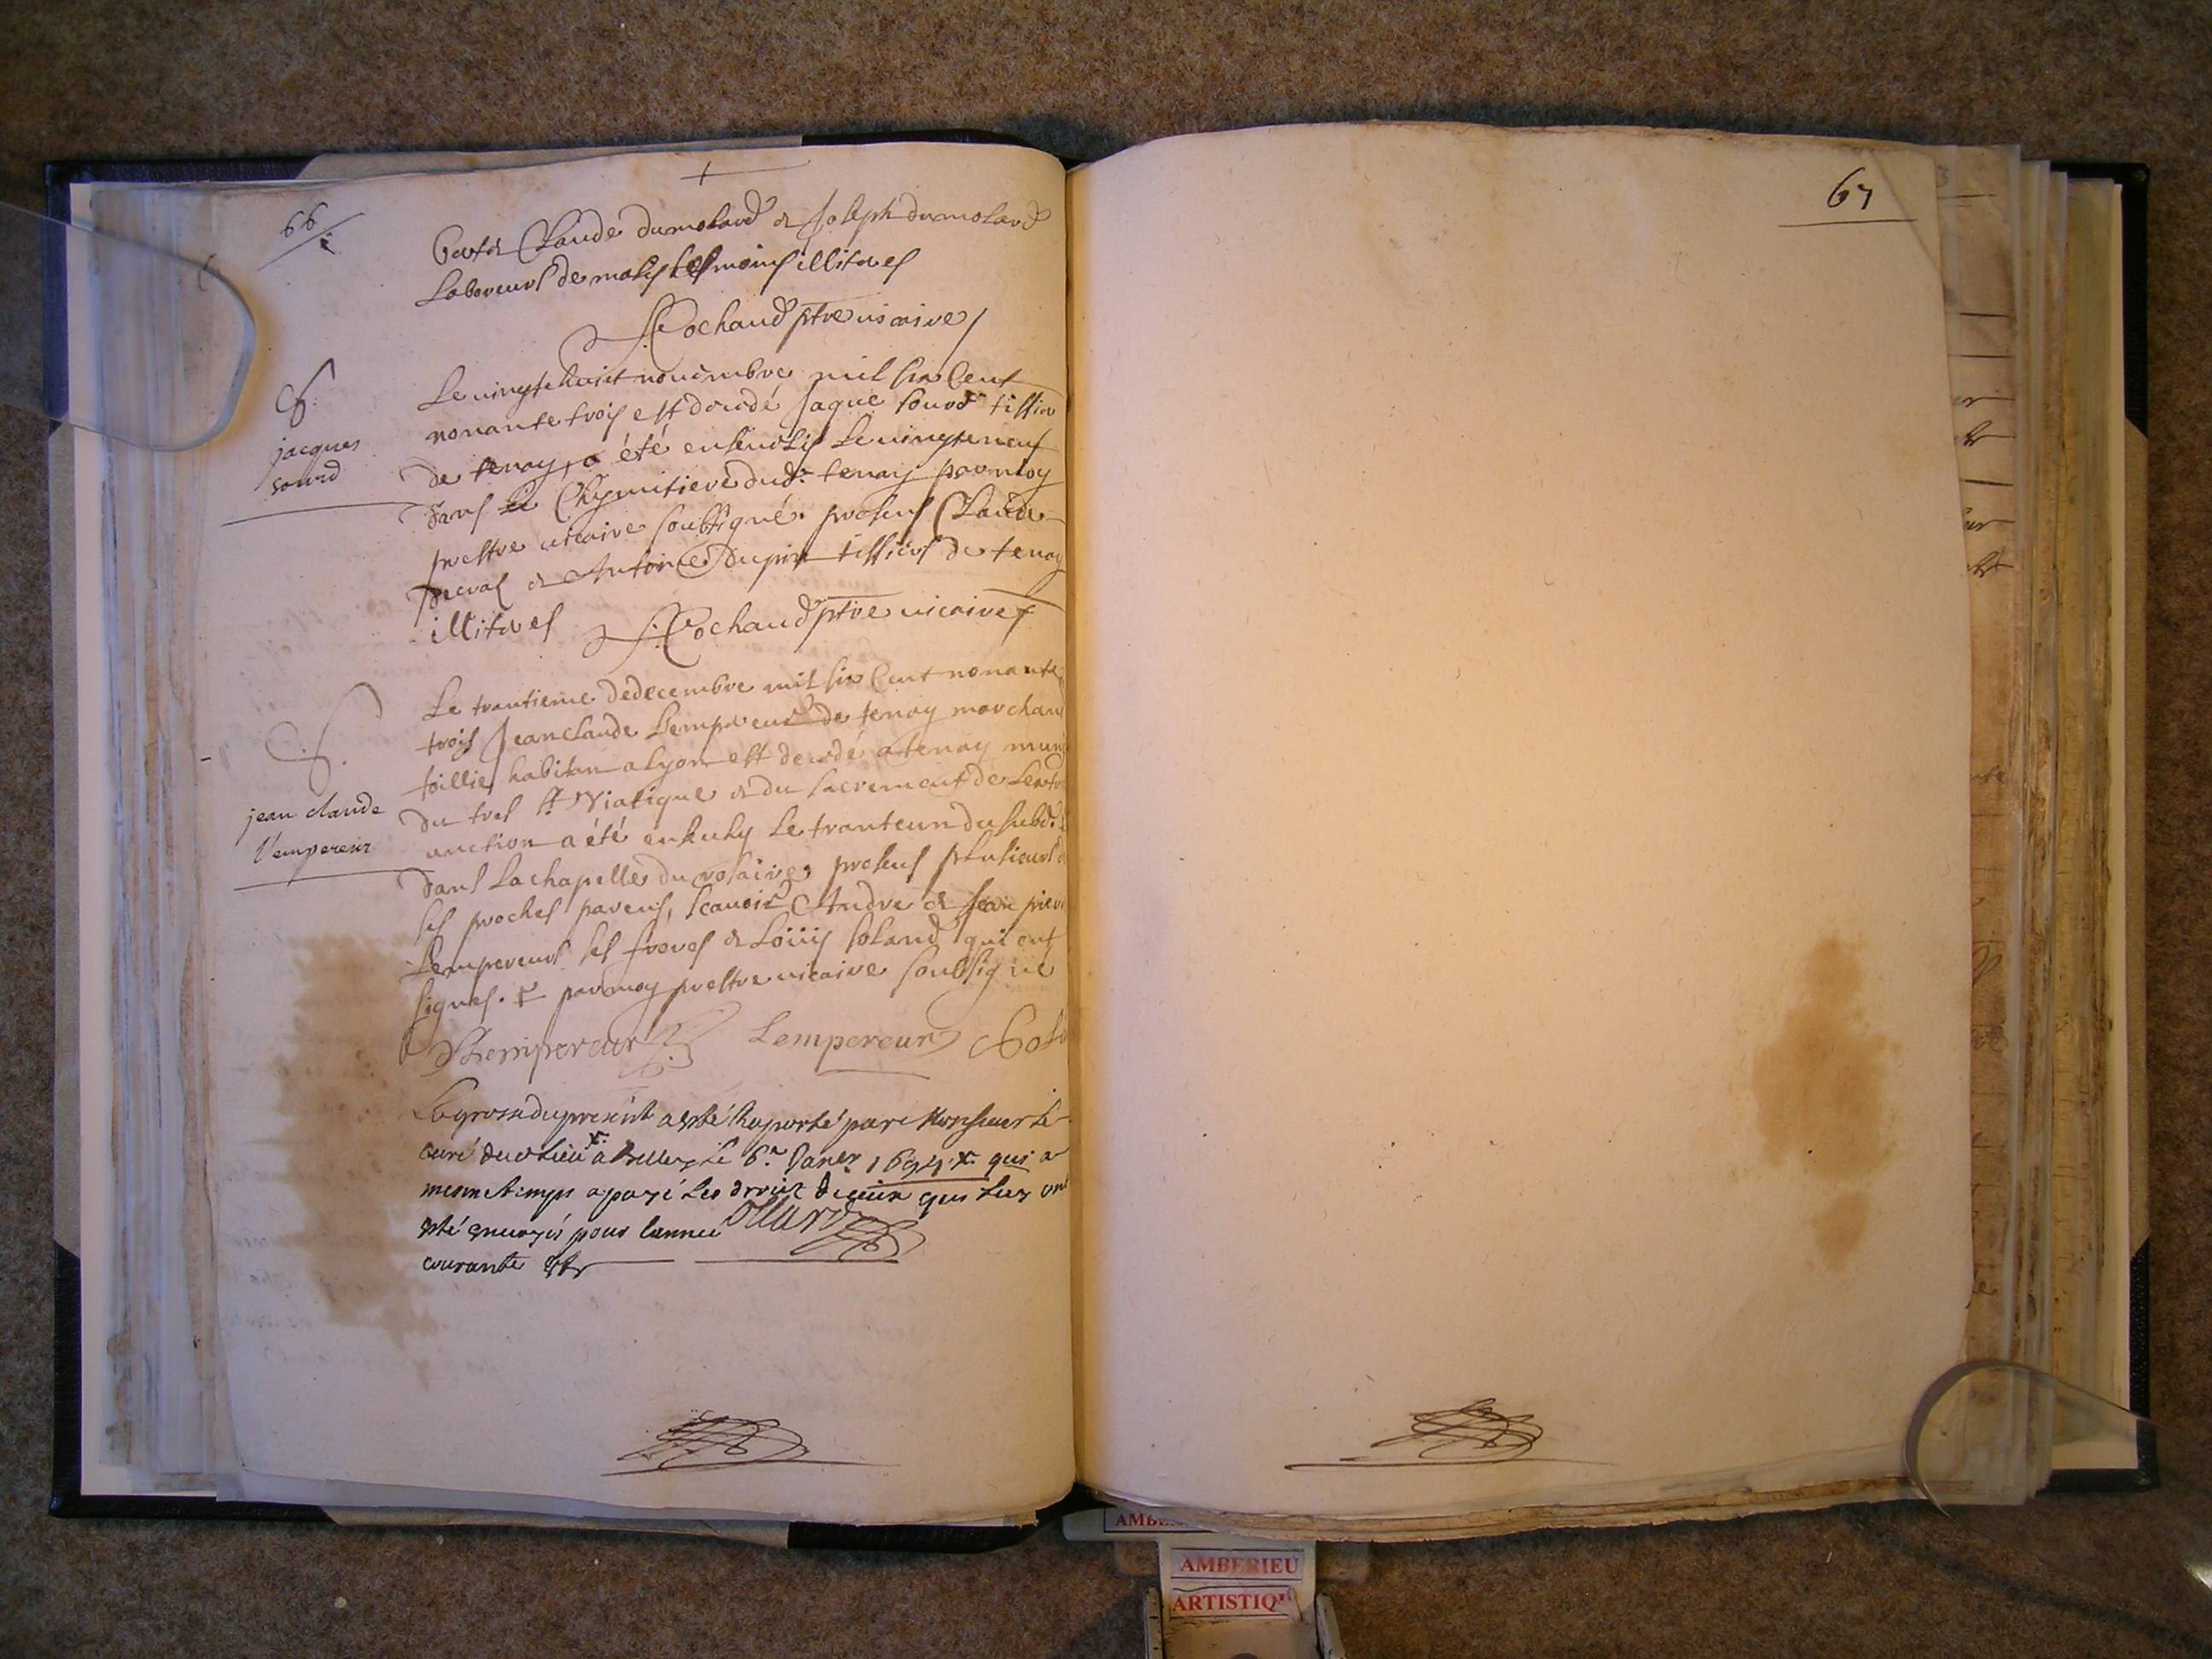 66
Claude dumolard & Joseph dumolard
Laboreurs de tesmoins illiteres
Cochand ptre vicaire
S.
jacques
sourd
Le vingtehuict novembre mil six Cent
nonante trois est decedé Jaque sourd tissier
de tenay, a été ensevelis le vingteneuf
dans le Chymitiere dud. tenay par moy
prestre vicaire soubsigné. presens Claude
& Antoine Dupin tissiers de tenay
illiteres
Cochand ptre vicaire
S.
jean claude
l'empereur
Le trantieme de decembre mil six Cent nonante
trois Jean Claude Lempereur de tenay marchand
habitan a Lyon est decedé a tenay muni
du tres st Viatique & du sacrement de
onction a été le tranteun du
dans la chapelle du rosaire, presens plusieurs
ses proches parens, scavoir Andre & Jean pierre
Lempereurs ses freres & Loüis qui ont
signes. & par moy prestre vicaire soubsigné
Lempereur Lempereur
La grosse du present a esté raporté par Monsieur le
curé dud lieu a Belley le 6e Janer 1694 qui a
mesme temps a payé les droitz d'iceux qui luy ont
esté pour lannee
courante
67
AMBERIEU
ARTISTIQU